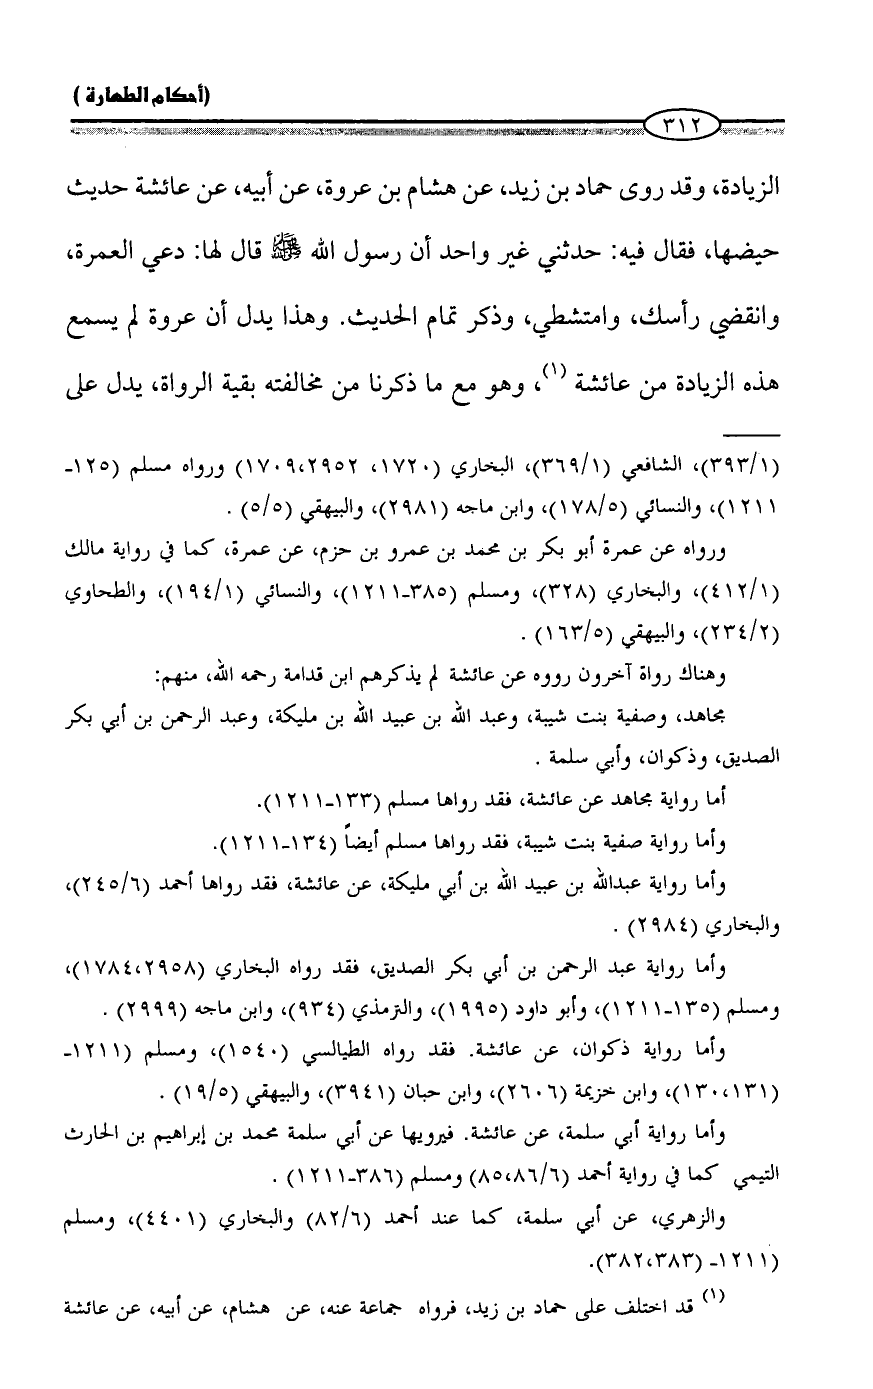 (أحكام الطهارة)
٣١٢
الزيادة، وقد روى حماد بن زيد، عن هشام بن عروة، عن أبيه، عن عائشة حديث
حيضها، فقال فيه: حدثني غير واحد أن رسول الله ﷺ قال لها: دعي العمرة،
وانقضي رأسك، وامتشطي، وذكر تمام الحديث. وهذا يدل أن عروة لم يسمع
هذه الزيادة من عائشة (١)، وهو مع ما ذكرنا من مخالفته بقية الرواة، يدل على
(٣٩٣/١)، الشافعي (٣٦٩/١)، البخاري (١٧٢٠، ١٧٠٩،٢٩٥٢) ورواه مسلم (١٢٥-
١٢١١)، والنسائي (١٧٨/٥)، وابن ماجه (٢٩٨١)، والبيهقي (٥/٥) .
ورواه عن عمرة أبو بكر بن محمد بن عمرو بن حزم، عن عمرة، كما في رواية مالك
(٤١٢/١)، والبخاري (٣٢٨)، ومسلم (٣٨٥-١٢١١)، والنسائي (١٩٤/١)، والطحاوي
(٢٣٤/٢)، والبيهقي (١٦٣/٥) .
وهناك رواة آخرون رووه عن عائشة لم يذكرهم ابن قدامة رحمه الله، منهم:
مجاهد، وصفية بنت شيبة، وعبد الله بن عبيد الله بن مليكة، وعبد الرحمن بن أبي بكر
الصديق، وذكوان، وأبي سلمة .
أما رواية مجاهد عن عائشة، فقد رواها مسلم (١٣٣-١٢١١).
وأما رواية صفية بنت شيبة، فقد رواها مسلم أيضاً (١٣٤-١٢١١).
وأما رواية عبدالله بن عبيد الله بن أبي مليكة، عن عائشة، فقد رواها أحمد (٢٤٥/٦)،
والبخاري (٢٩٨٤) .
وأما رواية عبد الرحمن بن أبي بكر الصديق، فقد رواه البخاري (١٧٨٤،٢٩٥٨)،
ومسلم (١٣٥-١٢١١)، وأبو داود (١٩٩٥)، والترمذي (٩٣٤)، وابن ماجه (٢٩٩٩) .
وأما رواية ذكوان، عن عائشة. فقد رواه الطيالسي (١٥٤٠)، ومسلم (١٢١١-
١٣٠،١٣١)، وابن خزيمة (٢٦٠٦)، وابن حبان (٣٩٤١)، والبيهقي (١٩/٥) .
وأما رواية أبي سلمة، عن عائشة. فيرويها عن أبي سلمة محمد بن إبراهيم بن الحارث
التيمي كما في رواية أحمد (٨٥،٨٦/٦) ومسلم (٣٨٦-١٢١١) .
والزهري، عن أبي سلمة، كما عند أحمد (٨٢/٦) والبخاري (٤٤٠١)، ومسلم
(١٢١١- ٣٨٢،٣٨٣).
(١) قد اختلف على حماد بن زيد، فرواه جماعة عنه، عن هشام، عن أبيه، عن عائشة